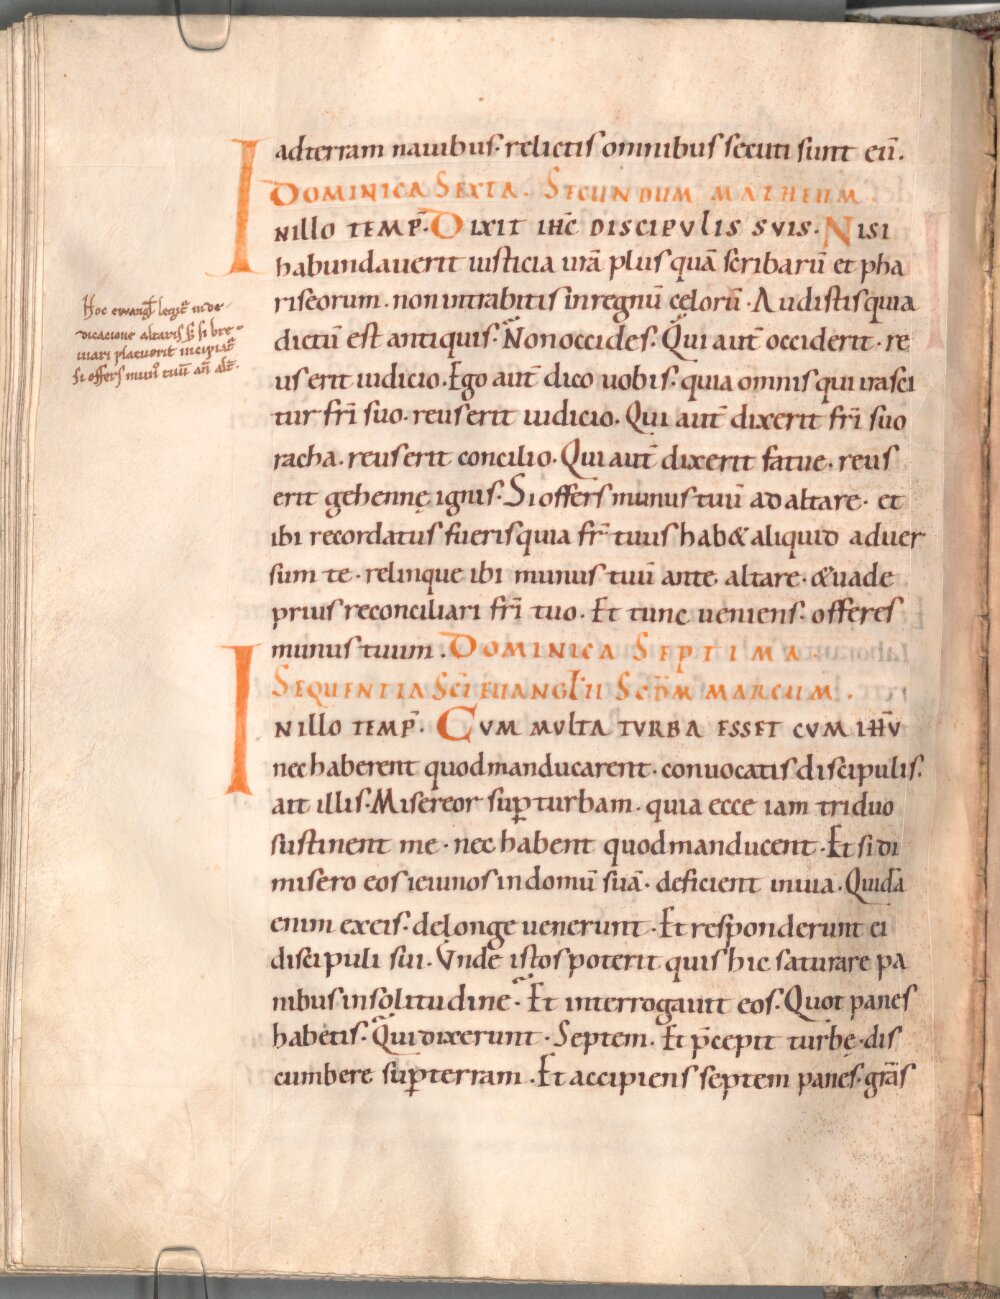 ad terram nauibus· relictis omnibus secuti sunt eū.
DOMINICA SEXTA. SECUNDUM MATHEUM.
INILLO TEMP̄. DIXIT IHC̄ DISCIPULIS SUIS· NISI
habundauerit iusticia urā plus quā scribarū et pha
riseorum. non intrabitis in regnū cęlorū· Audistis quia
dictū est antiquis· Non occides. Qui aut̄ occiderit· re
us erit iudicio. Ego aut̄ dico uobis· quia omnis qui irasci
tur fr̄i suo· reus erit iudicio. Qui aut̄ dixerit fr̄i suo
racha. reus erit concilio. Qui aut̄ dixerit fatue· reus
erit gehennę ignis· Si offers munus tuū ad altare· et
ibi recordatus fueris quia fr̄ tuus hab& aliquid aduer
sum te· relinque ibi munus tuū ante altare· &uade
prius reconciliari fr̄i tuo. Et tunc ueniens· offeres
munus tuum. DOMINICA SEPTIMA.
SEQUENTIA SC̄I EUANGL̄II SCD̄M MARCUM.
INILLO TEMP̄. CUM MULTA TURBA ESSET CUM IHŪ
nec haberent quod manducarent· conuocatis discipulis·
ait illis. Misereor sup̄ turbam. quia ecce iam triduo
sustinent me· nec habent quod manducent· Et si di
misero eos ieiunos in domū suā· deficient in uia. Quidā
enim ex eis· de longe uenerunt· Et responderunt ei
discipuli sui. Vnde istos poterit quis hic saturare pa
nibus in solitudine· Et interrogauit eos· Quot panes
habetis· Qui dixerunt· Septem. Et p̄cepit turbę· dis
cumbere sup̄ terram. Et accipiens septem panes· grās
Hoc ewangl̄ legit̄ in de
dicacione altaris s& si bre
uiari placuerit incipiat̄
Si offers mun̄ tuū an̄ alt̄.